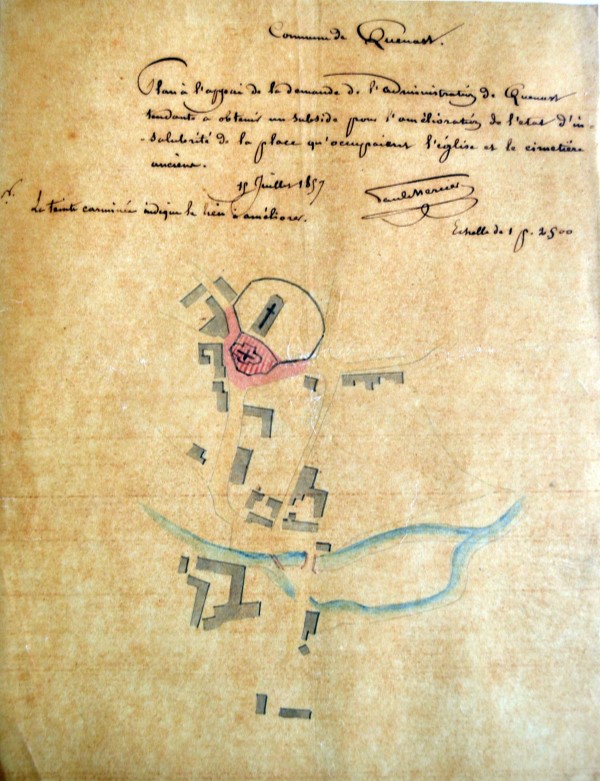 Commune de Quenast.
Plan à l'appui de la demande de l'administration de Quenast
tendante à obtenir un subside pour l'amélioration de l'état d'in-
salubrité de la place qu'occupaient l'église et le cimetière
anciens.
15 Juillet 1857
La teinte carminée indique le lieu à améliorer.
Echelle de 1 p. 2500